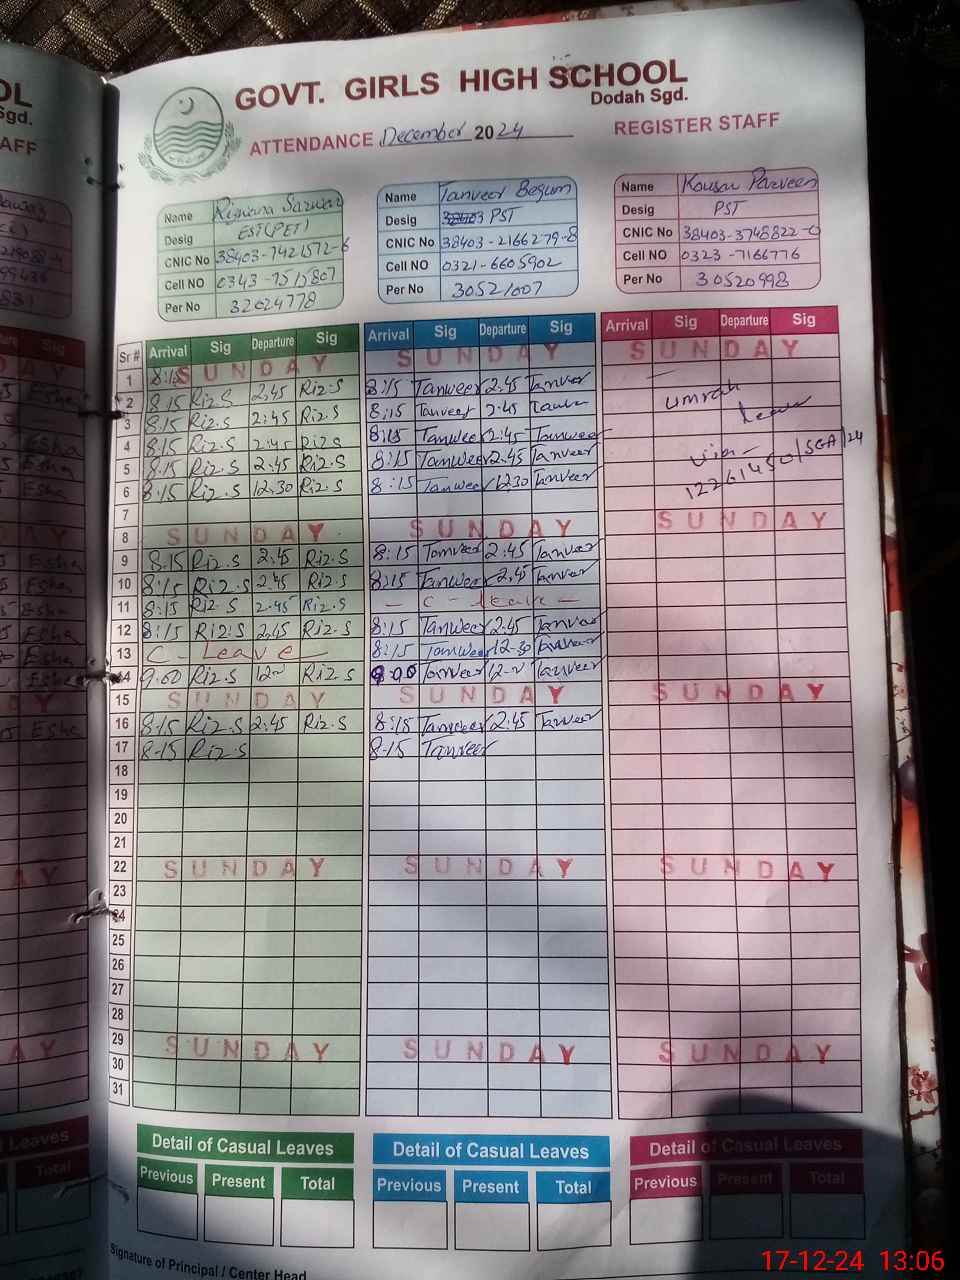 GOVT. GIRLS HIGH SCHOOL
Dodah Sgd.
ATTENDANCE December 2024 REGISTER STAFF
Name Rizwana Sarwar
Desig EST(PET)
CNIC No 38403-7421572-6
Cell NO 0343-7515807
Per No 32024778
Name Tanveer Begum
Desig PST
CNIC No 38403-2166279-8
Cell NO 0321-6605902
Per No 30521007
Name Kousar Parveen
Desig PST
CNIC No 38403-3748822-0
Cell NO 0323-7166776
Per No 30520998
Sr # Arrival Sig Departure Sig Arrival Sig Departure Sig Arrival Sig Departure Sig
1 8:15 SUNDAY SUNDAY SUNDAY
2 8:15 Riz.S 2.45 Riz.S 8:15 Tanweer 2:45 Tanveer
3 8:15 Riz.S 2:45 Riz.S 8:15 Tanveer 2:45 Umrah
4 8:15 Riz.S 2:45 Riz.S 8:15 Tanweer 2:45 Tanweer Leave
5 8:15 Riz.S 2:45 Riz.S 8:15 Tanweer 2.45 Tanveer
6 8:15 Riz.S 12.30 Riz.S 8:15 Tanweer 12.30 Tanveer 12261450/SGA/24
7
8 SUNDAY SUNDAY SUNDAY
9 8:15 Riz.S 2:45 Riz.S 8:15 Tanveer 2:45 Tanveer
10 8:15 Riz.S 2:45 Riz.S 8:15 Tanweer 2.45 Tanveer
11 8:15 Riz.S 2.45 Riz.S - C - leave -
12 8:15 Riz.S 2.45 Riz.S 8:15 Tanweer 2.45 Tanveer
13 C - Leave - 8:15 Tanweer 12-30 Tanveer
14 9:00 Riz.S 12- Riz.S 9:00 Tanveer 12- Tanveer
15 SUNDAY SUNDAY SUNDAY
16 8:15 Riz.S 2:45 Riz.S 8:15 Tanweer 2.45 Tanveer
17 8-15 Riz.S 8-15 Tanveer
18
19
20
21
22 SUNDAY SUNDAY SUNDAY
23
24
25
26
27
28
29 SUNDAY SUNDAY SUNDAY
30
31
Detail of Casual Leaves Detail of Casual Leaves Detail of Casual Leaves
Previous Present Total Previous Present Total Previous Present Total
Signature of Principal / Center Head
17-12-24 13:06